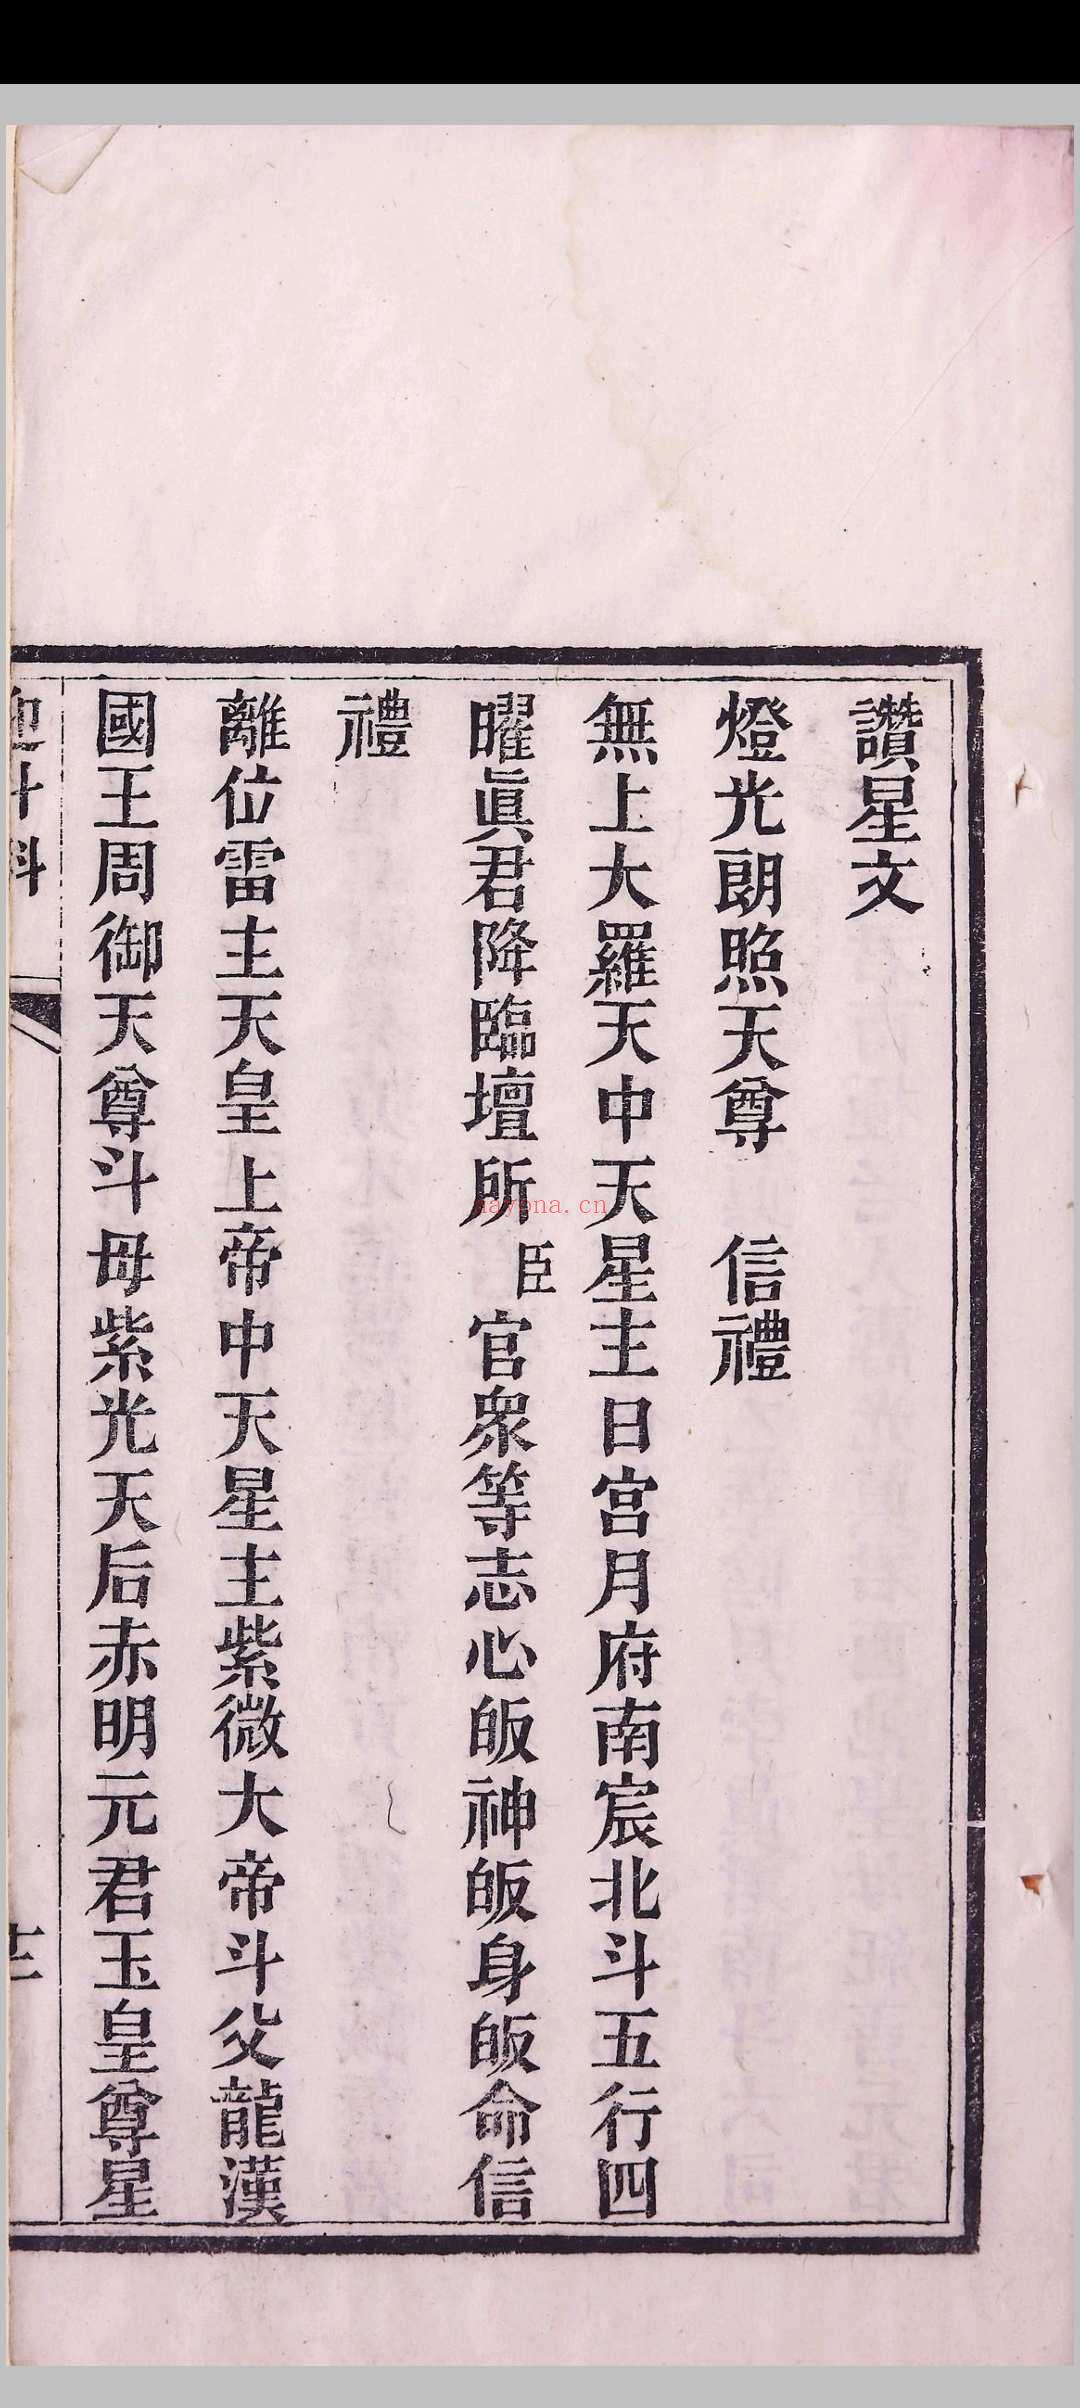 讚星文
燈光朗照天尊 信禮
無上大羅天中天星主日宮月府南宸北斗五行四
曜眞君降臨壇所臣官衆等志心皈神皈身皈命信
禮
離位雷主天皇上帝中天星主紫微大帝斗父龍漢
國王周御天尊斗母紫光天后赤明元君玉皇尊星
斗科
nayona.cn